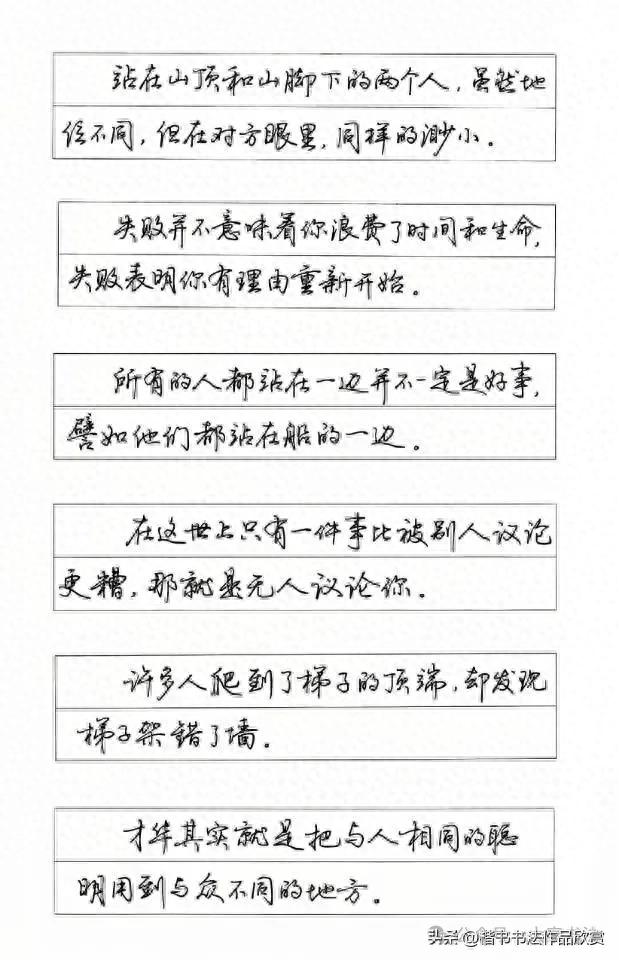 站在山顶和山脚下的两个人，虽然地
位不同，但在对方眼里，同样的渺小。
失败并不意味着你浪费了时间和生命，
失败表明你有理由重新开始。
所有的人都站在一边并不一定是好事，
譬如他们都站在船的一边。
在这世上只有一件事比被别人议论
更糟，那就是无人议论你。
许多人爬到了梯子的顶端，却发现
梯子架错了墙。
才华其实就是把与人相同的聪
明用到与众不同的地方。
头条@楷书书法作品欣赏